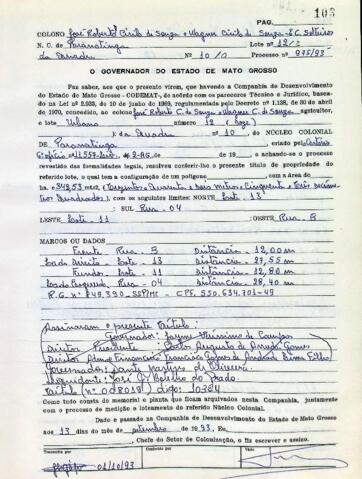 PAG. 103
COLONO José Roberto Civils de Souza e Wagner Civils de Souza - S.C. Solteiro
N. C. de Paranatinga Lote nº 12
da Quadra Nº 10/0 Processo nº 975/93
O GOVERNADOR DO ESTADO DE MATO GROSSO
Faz saber, aos que o presente virem, que havendo a Companhia de Desenvolvimento
do Estado de Mato Grosso - CODEMAT-, de acôrdo com os pareceres Técnico e Jurídico, baseado
na Lei nº 2.933, de 10 de junho de 1969, regulamentada pelo Decreto nº 1.138, de 30 de abril
de 1970, concedido, ao colono José Roberto C. de Souza e Wagner C. de Souza agricultor,
o lote Urbano número 12
da Quadra nº 10. do NÚCLEO COLONIAL
de Paranatinga criado pelo
nº 11.557 2-RG. de de 19 e achando-se o processo
revestido das formalidades legais, resolveu conferir-lhe o presente título de propriedade
do referido lote, o qual tem a configuração de um polígono com a área de
ha. 346,53 mt2, (Trezentos Quarenta e seis metros, Cinquenta e Três decímetros
Quadrados) com os seguintes limites: NORTE Lote 13
SUL Rua - 04
LESTE Lote - 11 OESTE Rua B
MARCOS OU DADOS
Frente Rua - B Distância - 12,00 m
Lado Direito Lote - 13 Distância - 27,55 m
Fundos Lote - 11 Distância - 12,80 m
Lado Esquerdo Rua - 04 Distância - 28,40 m
R.G. nº 849,330 SSP/MT - CPF. 550.634.701-49
Assinaram o presente Título.
Governador: Jayme Veríssimo de Campos
Diretor Presidente: Carlos Augusto de Arruda Gomes
Diretor Adm. e Financeiro Francisco Gomes de Andrade Lima Filho
Governador: Dante Martins de Oliveira.
Liquidante: José G. Botelho do Prado.
Título (nº 008019) digo: 10304
Como tudo consta do memorial e planta que ficam arquivados nesta Companhia, juntamente
com o processo de medição e loteamento do referido Núcleo Colonial.
Dado e passado na Companhia de Desenvolvimento do Estado de Mato Grosso
aos 13 dias do mês de setembro de 1993, Eu,
Chefe do Setor de Colonização, o fiz escrever e assino.
Transcrito por Conferido Visto
04/10/93